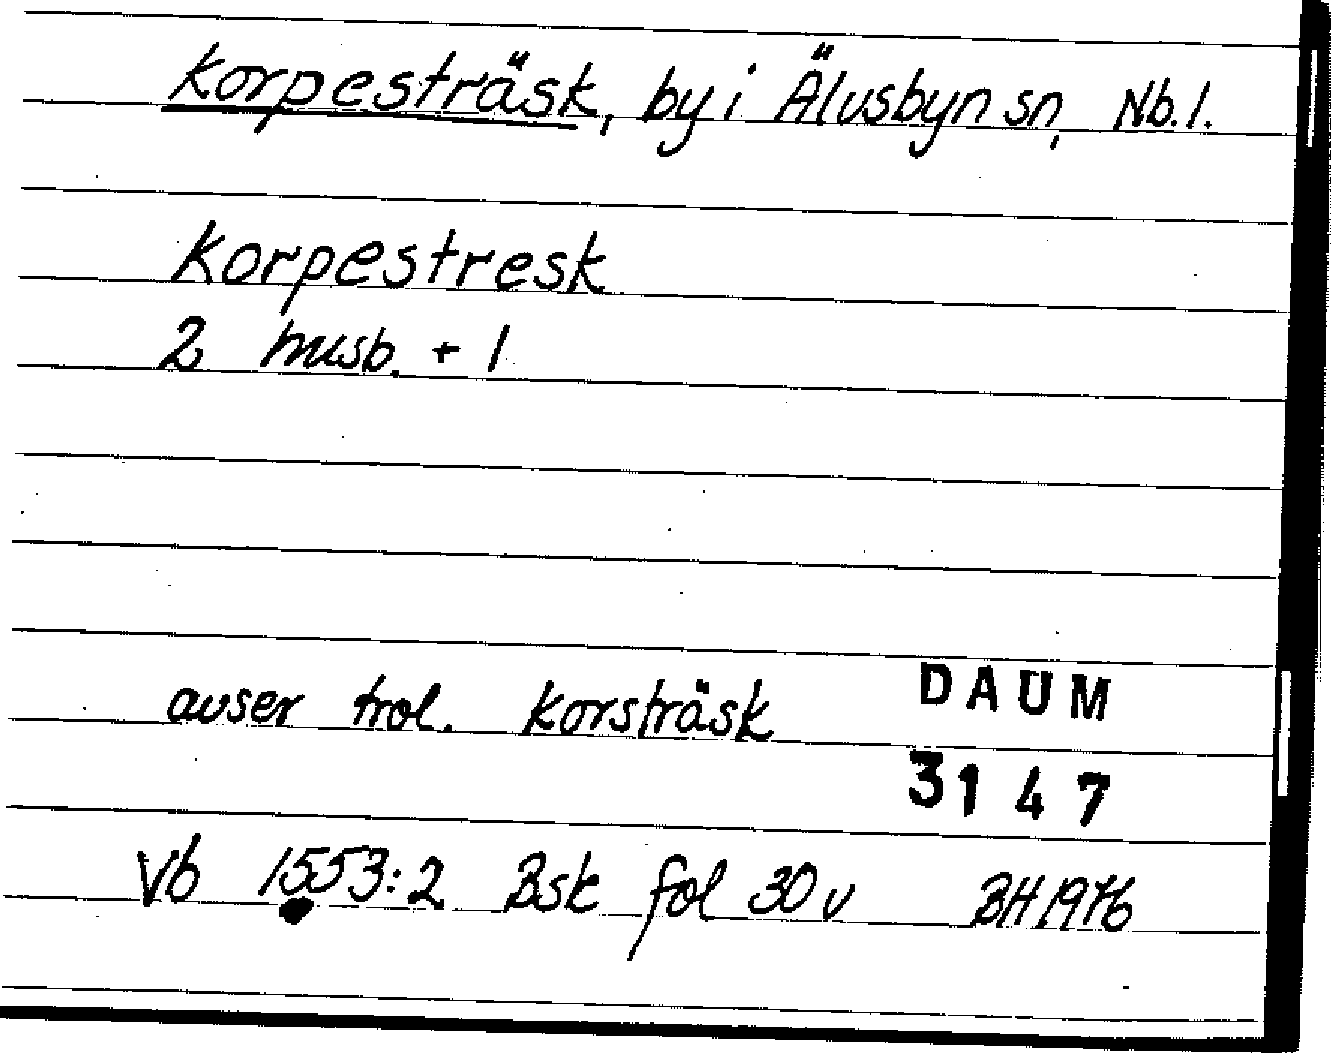 Korpesträsk, by i Älvsbyn sn, Nb.l.
Korpestresk
2 husb. + 1
avser trol. Korsträsk
DAUM
3147
Vb 1553:2 Bsk fol 30 v BH 1976